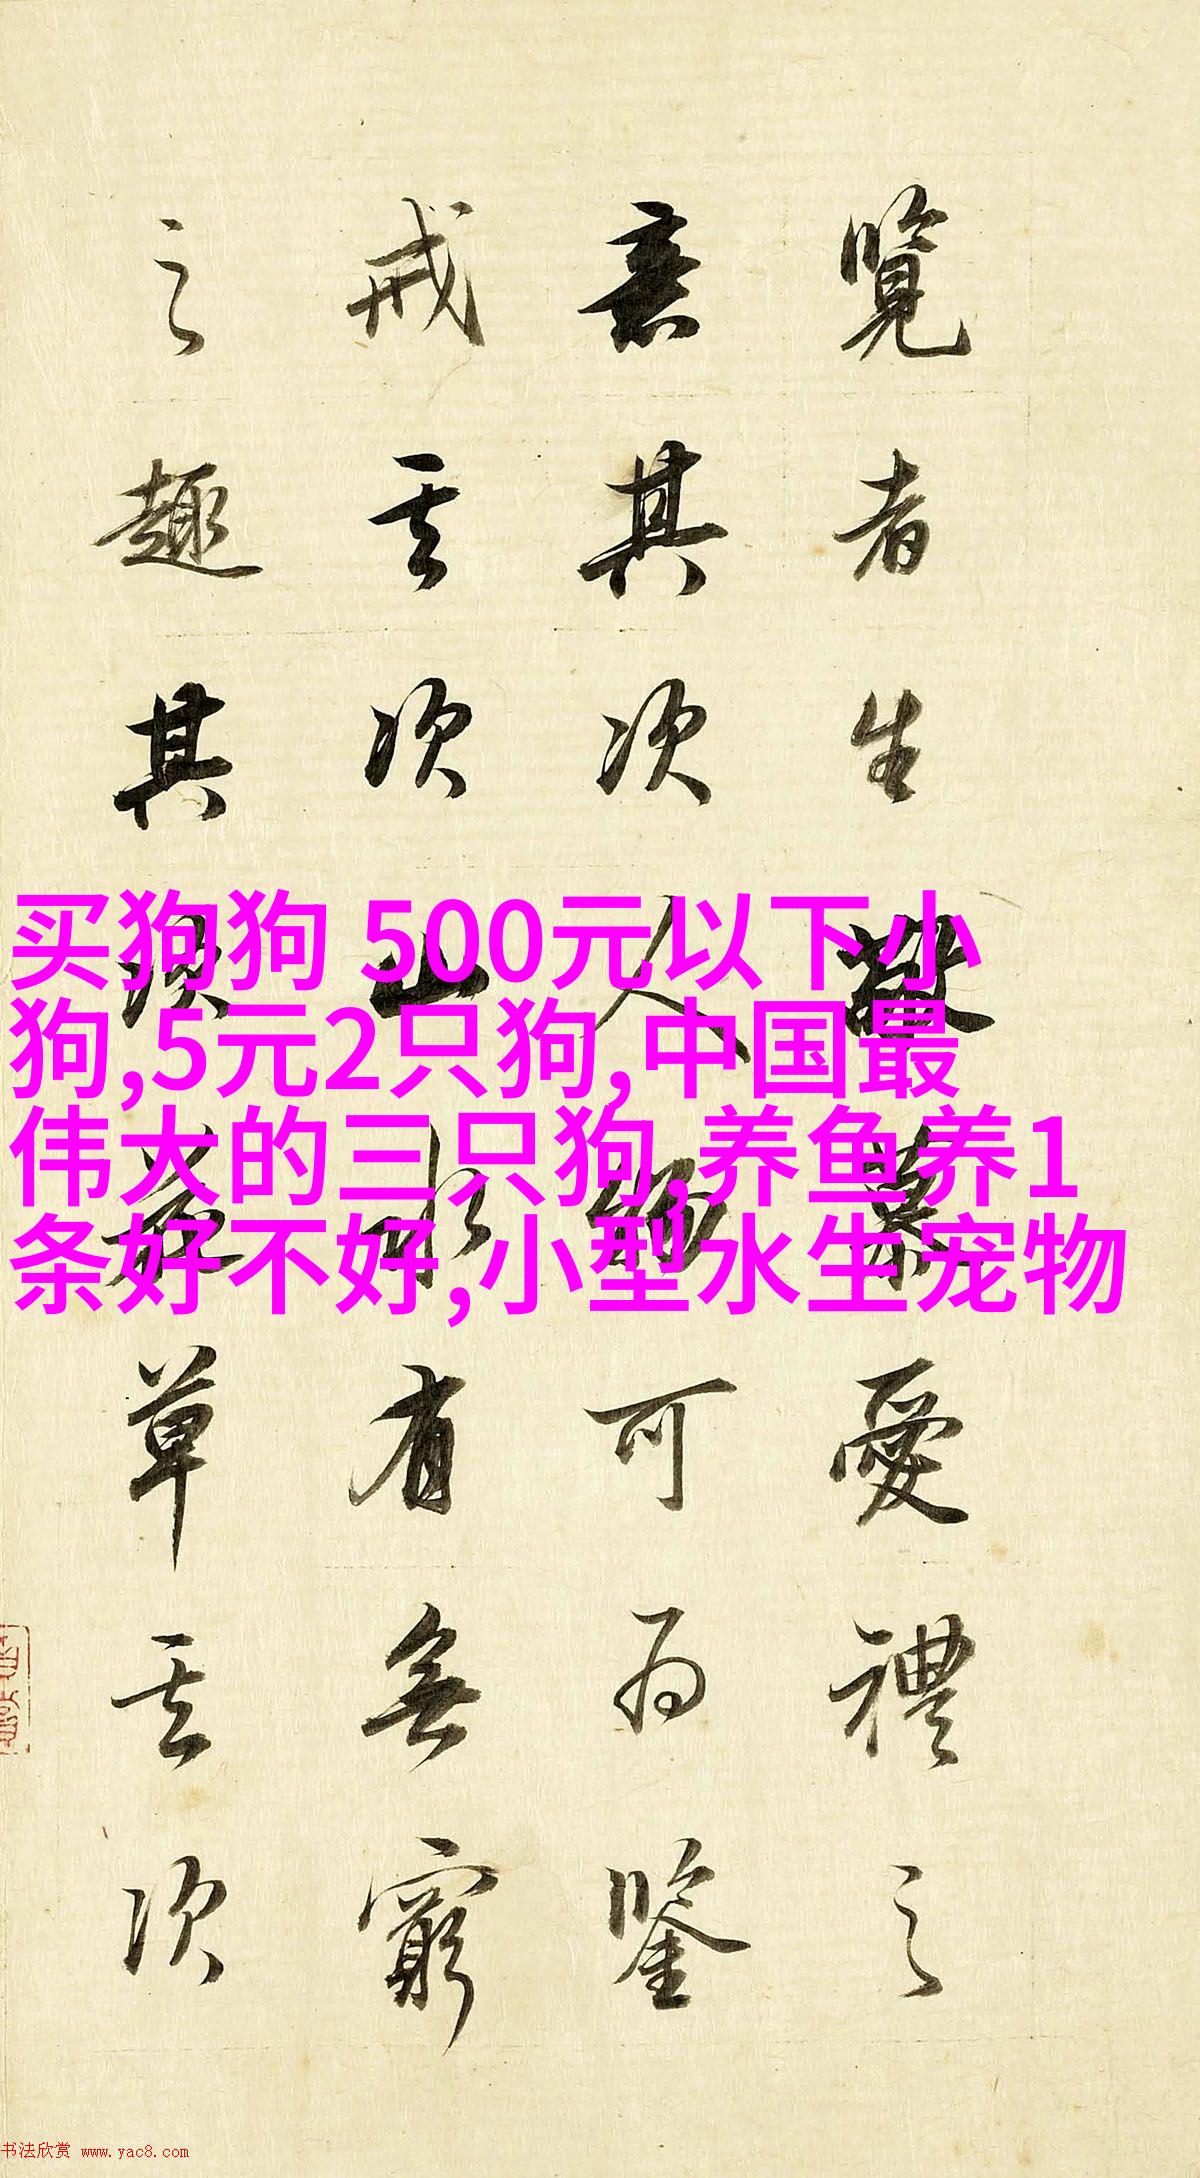 覽者生敬慕愛禮之
意其次人物可为鑒
戒其次山水有無窮
之趣其次花草其次
买狗狗 500元以下小
狗,5元2只狗,中国最
伟大的三只狗,养鱼养1
条好不好,小型水生宠物
书法欣赏 www.yac8.com